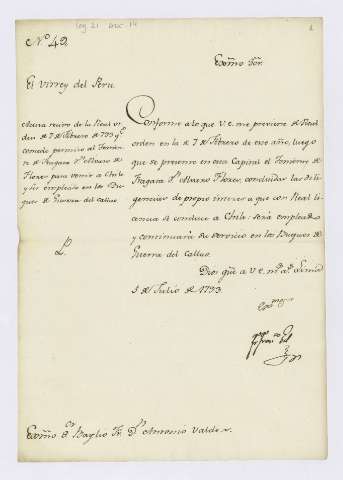 leg 21 doc 14
2
N.º 42.
Exmo Sor.
El Virrey del Peru.
Acusa recivo de la Real or-
den de 7 de Febrero de 793 q.
concede permiso al Tenien-
te de Fragata Dn Alvaro de
Flores para venir a Chile
y ser empleado en los Bu-
ques de Guerra del Callao.
Conforme a lo que V.E. me previene de Real
orden en la de 7 de Febrero de este año, luego
que se presente en esta Capital el Teniente de
Fragata Dn Alvaro Flores, concluidas las dili-
gencias de propio interes a que con Real li-
cencia se conduce a Chile: sera empleado
y continuará su servicio en los Buques de
Guerra del Callao.
Dios gue a V.E. ms as. Lima
5 de Julio de 1793.
Exmo Sor
Exmo Sor Baylio Fr. Dn Antonio Valdes.